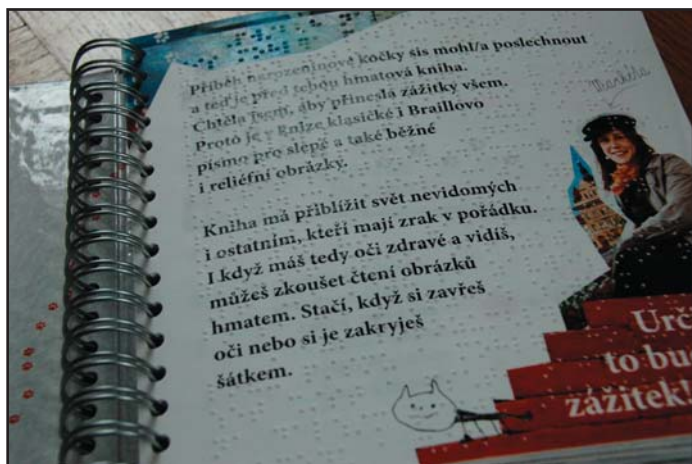 Příběh narozeninové kočky sis mohl/a poslechnout
a teď je před tebou hmatová kniha.
Chtěla jsem, aby přinesla zážitky všem.
Proto je v knize klasické i Braillovo
písmo pro slepé a také běžné
i reliéfní obrázky.
Markéta
Kniha má přiblížit svět nevidomých
i ostatním, kteří mají zrak v pořádku.
I když máš tedy oči zdravé a vidíš,
můžeš zkoušet čtení obrázků
hmatem. Stačí, když si zavřeš
oči nebo si je zakryješ
šátkem.
Urč
to bu
zážitek!